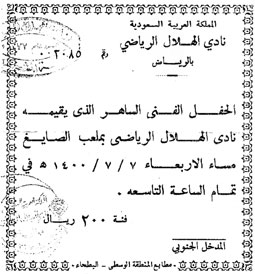 المملكة العربية السعودية
نادي الهلال الرياضي
بالرياض
رقم ٠٠٢٠٨٥
الحفل الفنى الساهر الذى يقيمه
نادى الهلال الرياضى بملعب الصايغ
مساء الاربعاء ٧ / ٧ / ١٤٠٠ ه في
تمام الساعة التاسعه .
فئة ٢٠٠ ريال
المدخل الجنوبي
مطابع المنطقة الوسطى - البطحاء